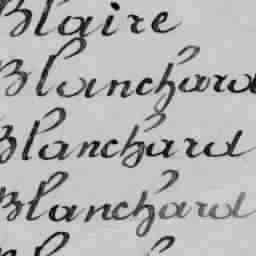 Blaire
Blanchard
Blanchard
Blanchard